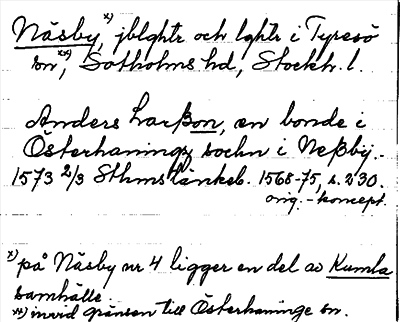 Näsby,x) jblghtr och lghtr i Tyresö
sn,xx) Sotholms hd, Stockh. l.
Anders Larßon, en bonde i
Österhanings sochn i Neßby.-
1573 2/3 Sthms tänkeb. 1568-75, s. 230.
orig. - koncept.
x) på Näsby nr 4 ligger en del av Kumla
samhälle.
xx) invid gränsen till Österhaninge sn.